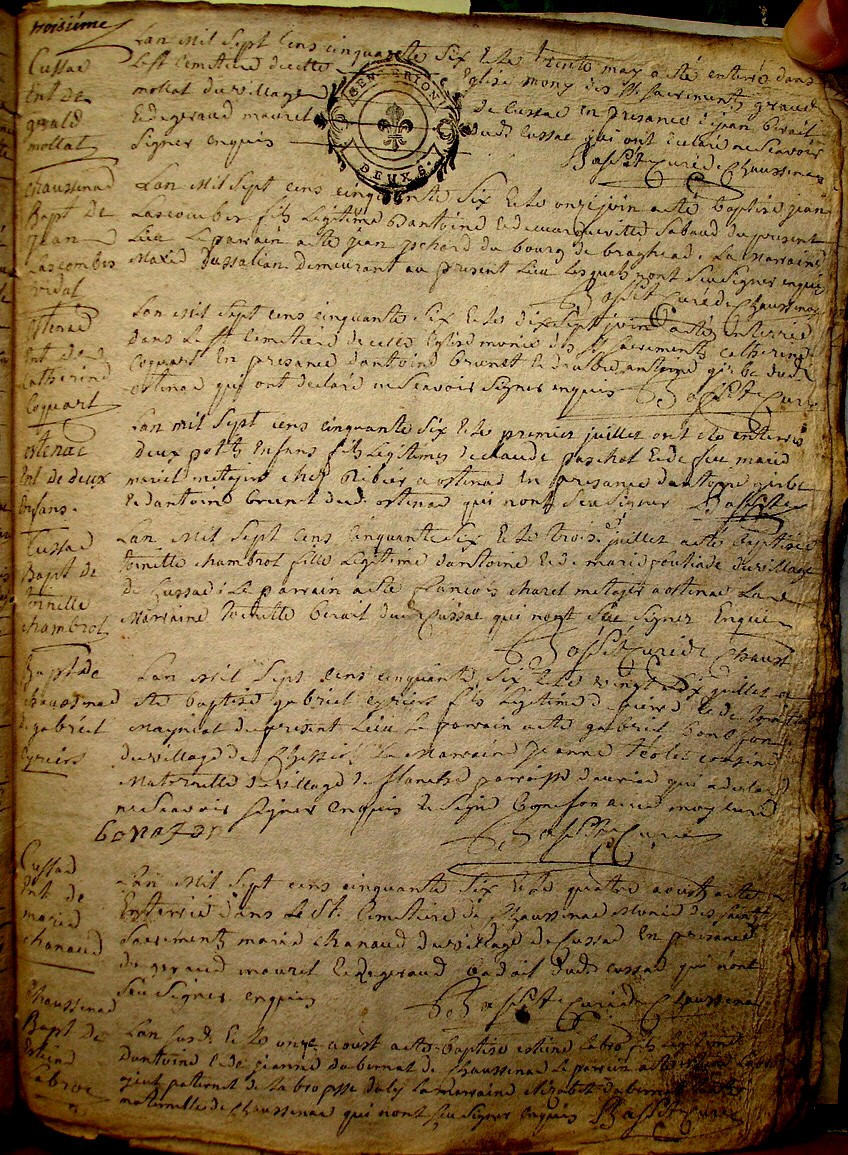 troisième
Cussac
Ent de
gerald
mollat
Lan Mil Sept Cens cinquante Six Et le trente may a esté enterré dans
Le St Cemetiere de cette Eglise muny des Sts sacrements geraud
mollat du village de Cussac en presance de jean Benoit
Et de geraud mouret dud. Cussac qui ont declaré ne scavoir
signer enquis Basset Curé de Chaussenac
GEN RION
DEUX S.
Chaussenac
Bapt De
jean
Lascombes
vidal
Lan Mil Sept cens cinquante Six Et le onze juin a esté baptisé jean
Lascombes fils Legitime Dantoine Et de margueritte Sabaud du present
Lieu Le parrain a esté jean du bourg de braghead. La Marraine
Marie Dussalian demeurant au present Lieu Lesquels nont Seu signer enquis
Basset Curé de Chaussenac
ostenac
Ent de
Catherine
Coquart
Lan Mil Sept cens cinquante Six Et Le dix Sept juin a esté Enterrée
dans Le St Cemetiere de cette Eglise munie des Sts Sacrements Catherine
Coquart En presance dantoine brunet Et dautre antoine girbe dudt
ostenac qui ont declaré ne Scavoir Signer enquis Basset Curé
ostenac
Ent de deux
Enfans.
Lan mil Sept cens cinquante Six Et Le premier juillet ont eté enterrés
deux petits Enfans fils Legitimes de claude paschot Et de feue marie
mariel metayers chez Ribier a ostenac En presance dantoine girbe
Et dantoine brunet dud. ostenac qui nont Seu Signer Basset
Cussac
Bapt de
toinette
chambrot
Lan Mil Sept Cens Cinquante Six Et Le trois juillet a esté baptisée
toinette chambrot fille Legitime dantoine Et de marie du village
de Cussac. Le parrain a esté francois charel metayer a ostenac La
Marraine toinette benoit dud Cussac qui nont Seu Signer Enquis
Basset Curé de Chaussenac
Bapt de
chaussenac
de gabriel
Eyriers
Lan Mil Sept Cens cinquante Six Et Le vingt Six juillet a
eté baptisé gabriel Eyriers fils Legitime de pierre Et de toinette
Maynial du present Lieu Le parrain a esté gabriel Bonafon
du village de La Marraine Jeanne Teolet cousine
Maternelle du village de flanche parroisse dauriac qui a declaré
ne Scavoir Signer enquis Le Signé Bonefon avec moy Curé
bonafon Basset Curé
Cussac
Ent de
marie
chanaud
Lan Mil Sept cens cinquante Six Et Le quatre aoust a esté
Enterrée dans Le St. Cemetiere de Chaussenac Munie des Saints
Sacrements marie Chanaud du village de Cussac En presance
de geraud mouret Et de geraud badail dudt cussac qui nont
Seu Signer enquis Basset Curé de Chaussenac
Chaussenac
Bapt de
Estiene
Labroe
Lan susd. Et Le onze aoust a esté baptisé estiene Labro fils Legitime
dantoine Et de jeanne dubernat de Chaussenac Le parrain a esté
ayeul paternel de La brosse dally La marraine Elizabet dubernat
maternelle de Chaussenac qui nont Seu Signer Enquis Basset Curé